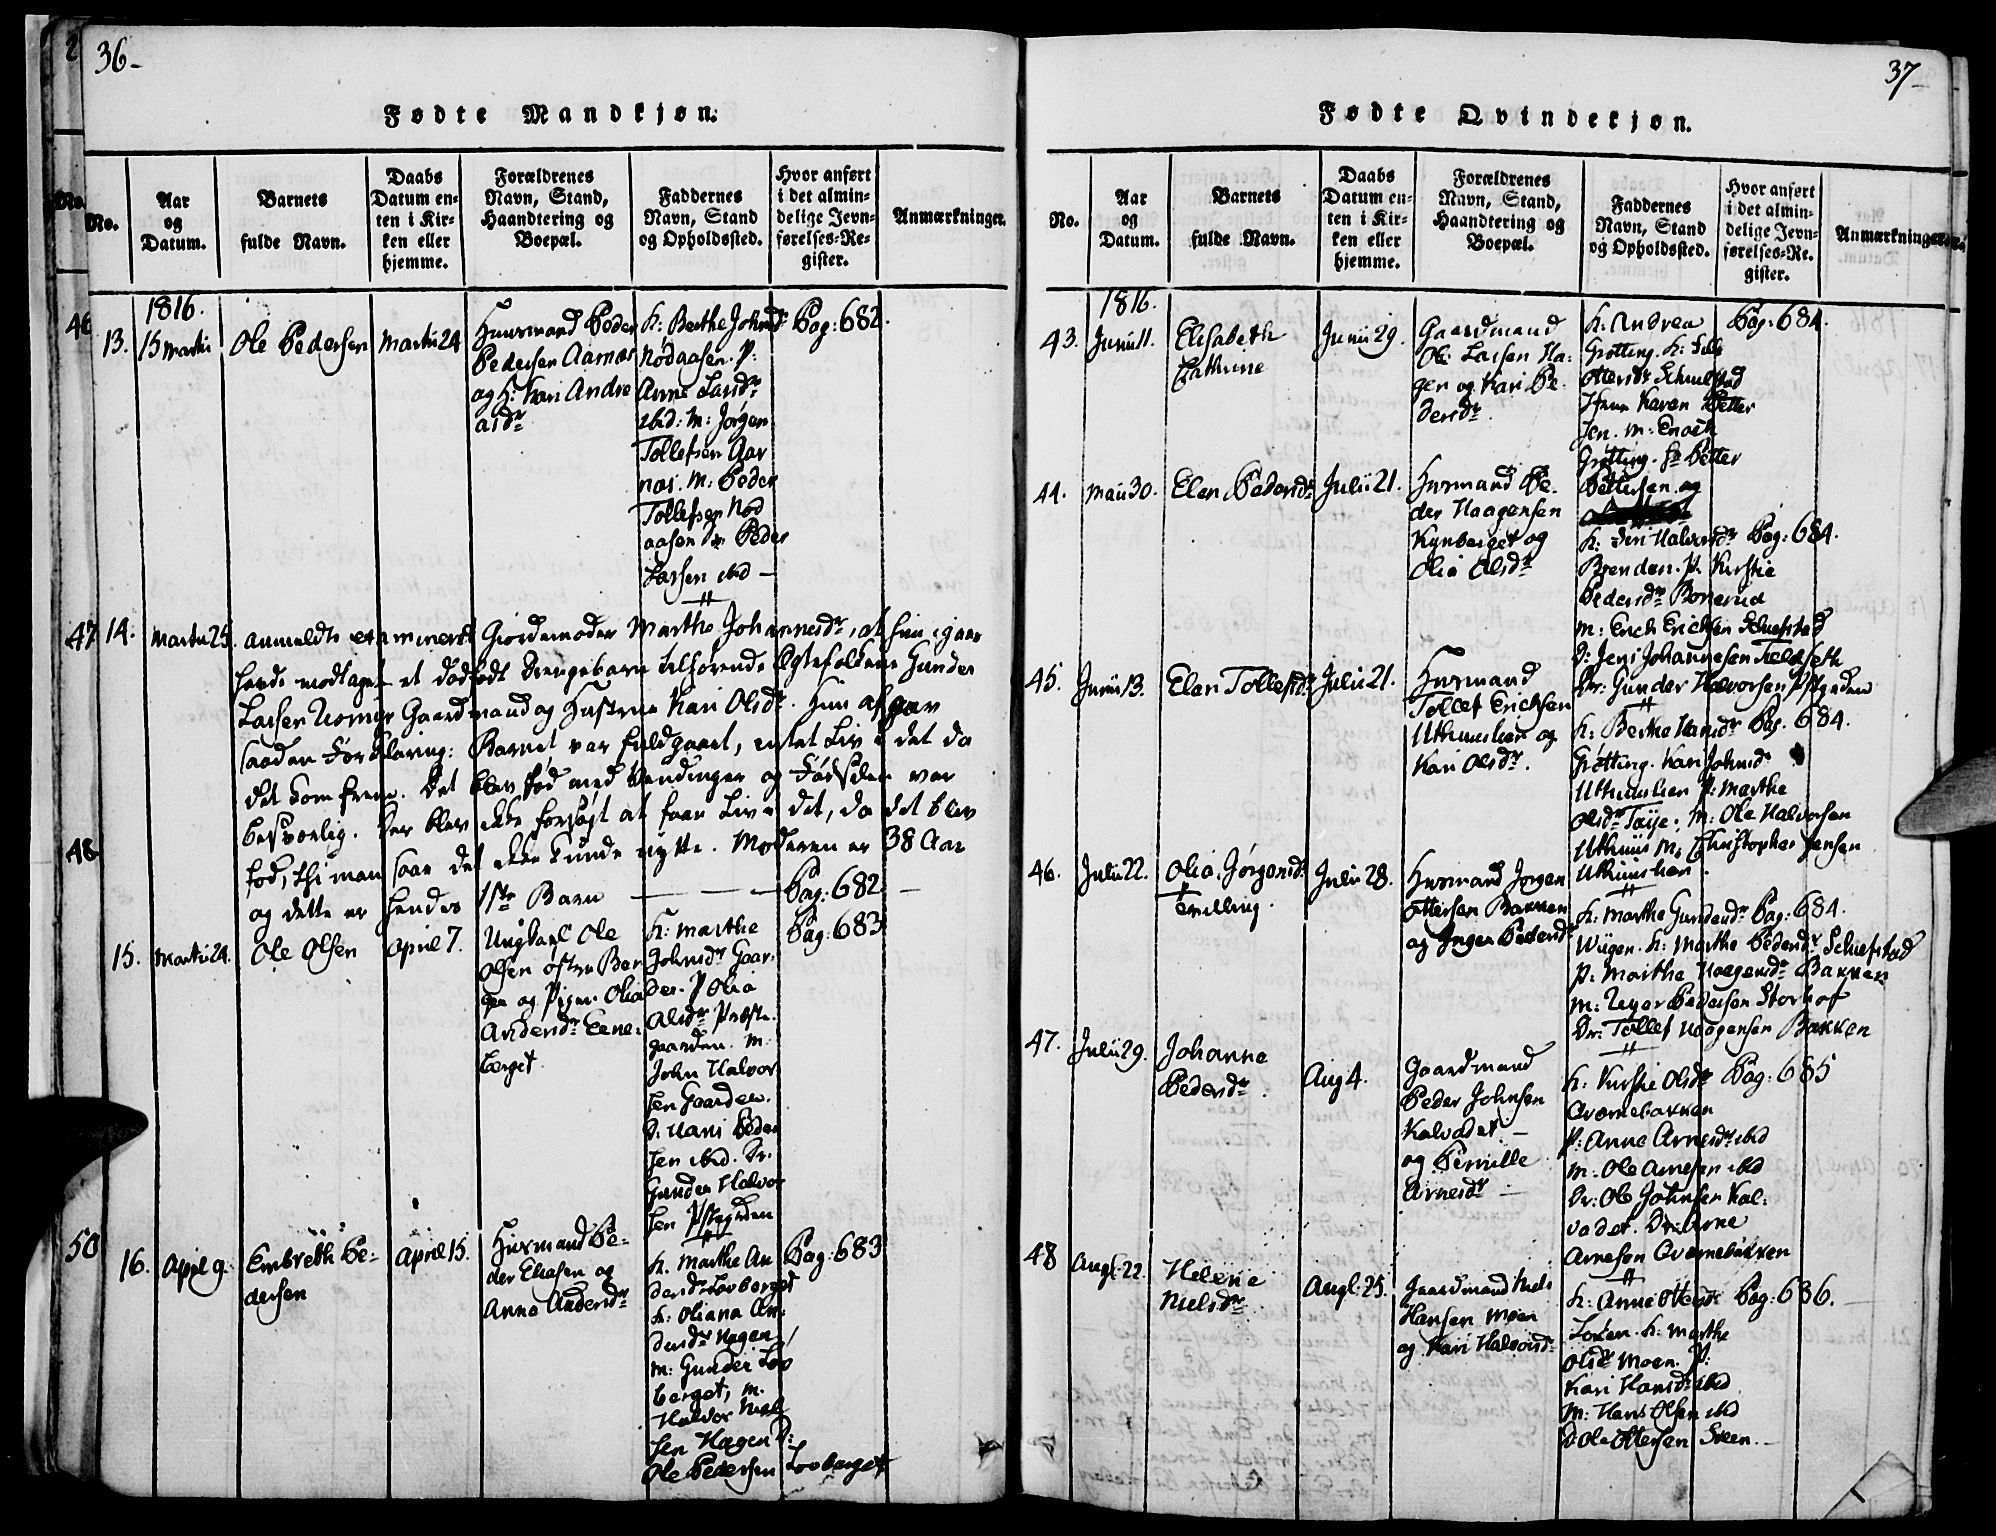 36-
Fødte Mandkjøn.
No.
Aar og Datum.
Barnets fulde Navn.
Daabs Datum enten i Kirken eller hjemme.
Forældrenes Navn, Stand, Haandtering og Boepæl.
Faddernes Navn, Stand og Opholdssted.
Hvor anført i det almindelige Jevnførelses-Register.
Anmærkninger.
1816.
13.
15 Martii
Ole Pedersen
Martii 24
Huusmand Peder
Pedersen Aarnæs
og H: Kari Andre
asdr
K: Berthe Johnsdr
Nødaasen. P:
Anne Larsdr
ibid: M: Jørgen
Tollefsen Aar
næs. M: Peder
Tollefsen Nød
aasen Dr: Peder
Larsen ibid —
Pag: 682.
14.
Martii 25.
anmeldte examinerte Giordemoder Marthe Johannesdr, at hun igaar
havde modtaget et dødfødt Drengebarn tilhørende Ægtefolkene Gunder
Larsen Gaardmand og Hustrue Kari Olsdr. Hun afgav
saadan Forklaring: Barnet var fuldgaaet, intet Liv i det da
det kom frem. Det blev fød med Vendinger og Fødselen var
besværlig. Der blev ikke forsøgt at faae Liv i det, da det blev
fød, thi man saae det ikke kunde nytte. Moderen er 38 Aar
og dette er hendes 1ste Barn — — — Pag: 682 —
15.
Martii 24.
Ole Olsen
April 7.
Ungkarl Ole
Olsen østre Ber
gen og Pigen Olia
Andersdr Eene:
berget
K: Marthe
Johnsdr Gaar
der. P Olia
Olsdr Præste
gaarden. M:
John Halvor
sen Gaarder.
D: Hans Peder
sen ibid. Dr.
Gunder Halvor
sen Pstgrden
Pag: 683
16.
April 9.
Embreth Pe-
dersen
April 15.
Huusmand Pe-
der Eliasen og
Anne Andersdr
K. Marthe An
dersdr Lovberget
K: Oliana An:
dersdr Hagen
M: Gunder Lov
berget, M.
Halvor Niel
sen Hagen D:
Ole Pedersen Lovberget
Pag: 683
46
47
48
50
37-
Fødte Qvindekjøn.
No.
Aar og Datum.
Barnets fulde Navn.
Daabs Datum enten i Kirken eller hjemme.
Forældrenes Navn, Stand, Haandtering og Boepæl.
Faddernes Navn, Stand og Opholdssted.
Hvor anført i det almindelige Jevnførelses-Register.
Anmærkninger.
1816.
43.
Junii 11.
Elisabeth
Cathrine
Junii 29.
Gaardmand
Ole Larsen Ha:
gen og Kari Pe
dersdr
K: Andrea
Grøtting. K:
Ottersdr
Karen Petter
sen. M: Enoch
Grøtting. Petter
Pettersen og
Pag: 684.
44.
Maii 30.
Elen Pedersdr
Julii 21.
Huusmand Pe-
der Haagensen
Kynberget og
Olia Olsdr
K: Siri Halvorsdr
Brenden. P. Kirstie
Pedersdr
M: Erich Erichsen
D: Jens Johannesen
Dr: Gunder Halvorsen Pstgrden
Pag: 684.
45.
Junii 13.
Elen Tollefsdr
Julii 21.
Huusmand
Tollef Erichsen
Uthuuslien og
Kari Olsdr.
K: Berthe Hansdr
Grøtting. Kari Johnsdr
Uthuuslien P: Marthe
Olsdr M: Ole Halvorsen
Uthuus M: Christopher Jensen
Uthuuslien.
Pag: 684.
46.
Julii 22.
Olia Jørgensdr
Tvilling.
Julii 28.
Huusmand Jørgen
Ottersen Bakken
og Inger Pedersdr
K: Marthe Gundersdr
Wiigen. K: Marthe Pedersdr
P: Marthe Haagensdr Bakken
M: Pedersen Storhof
Dr: Tollef Haagensen Bakken
Pag: 684.
47.
Julii 29.
Johanna
Pedersdr.
Aug 4.
Gaardmand
Peder Johnsen
Kalvadet —
og Pernille
Arnesdr —
K: Kirstie Olsdr
Qværnebakken
P: Anne Arnesdr ibid
M: Ole Arnesen ibid
Dr: Ole Johnsen Kal:
vadet. Dr: Arne
Arnesen Qværnebakken
Pag: 685
48
Augl: 22.
Helene
Nielsdr
Augl: 25.
Gaardmand Niels
Hansen Moen
og Kari Halvorsdr
K: Anne Ottersdr
K: Marthe
Olsdr Moen. P:
Kari Hansdr ibid
M: Hans Olsen ibid
D Ole Ottersen Sveen.
Pag: 686.